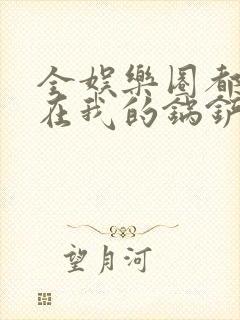 全娱樂圈都
在我的鍋
望月河